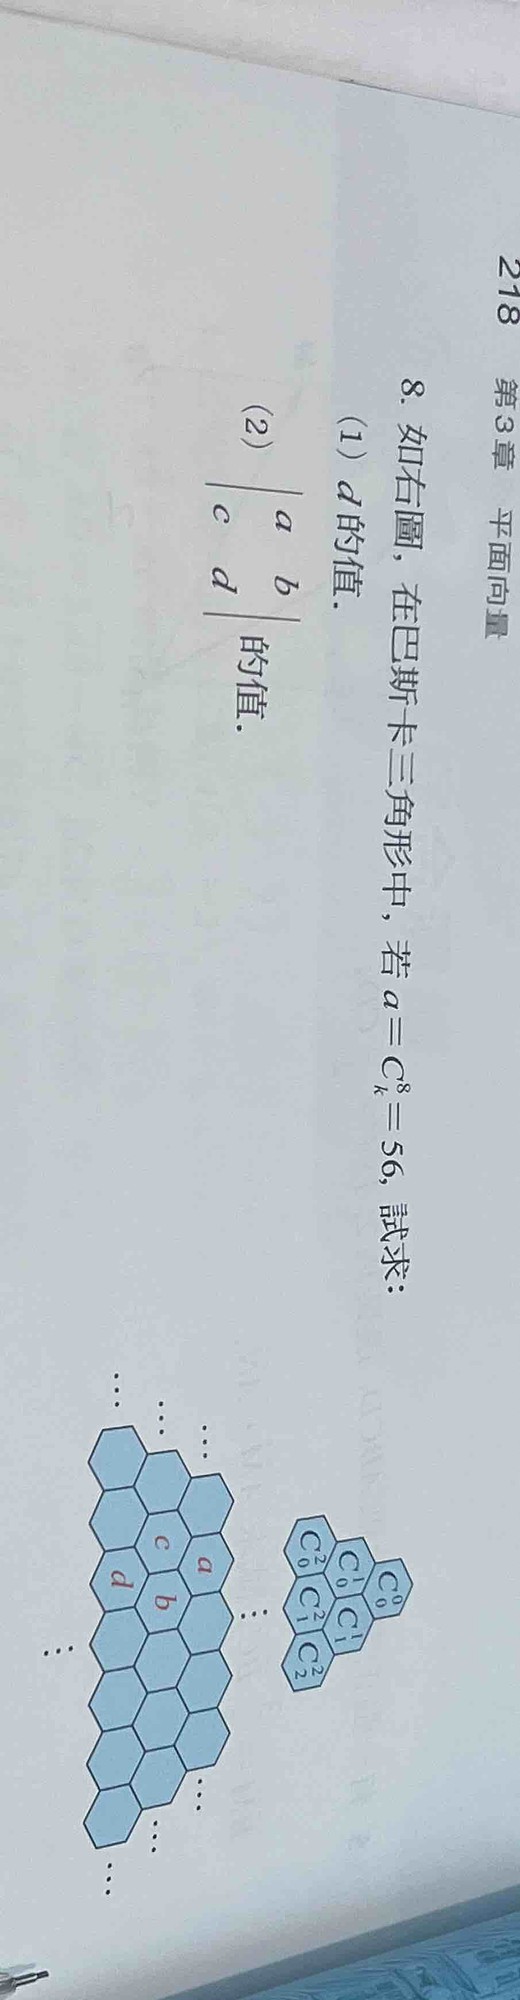 218 第3章 平面向量
8. 如右圖，在巴斯卡三角形中，若 a＝C⁸ₖ＝56，試求：
(1) d的值．
(2) | a b |
| c d | 的值．
C⁰₀
C¹₀ C¹₁
C²₀ C²₁ C²₂
⋮
… a …
… c b …
… d …
⋮